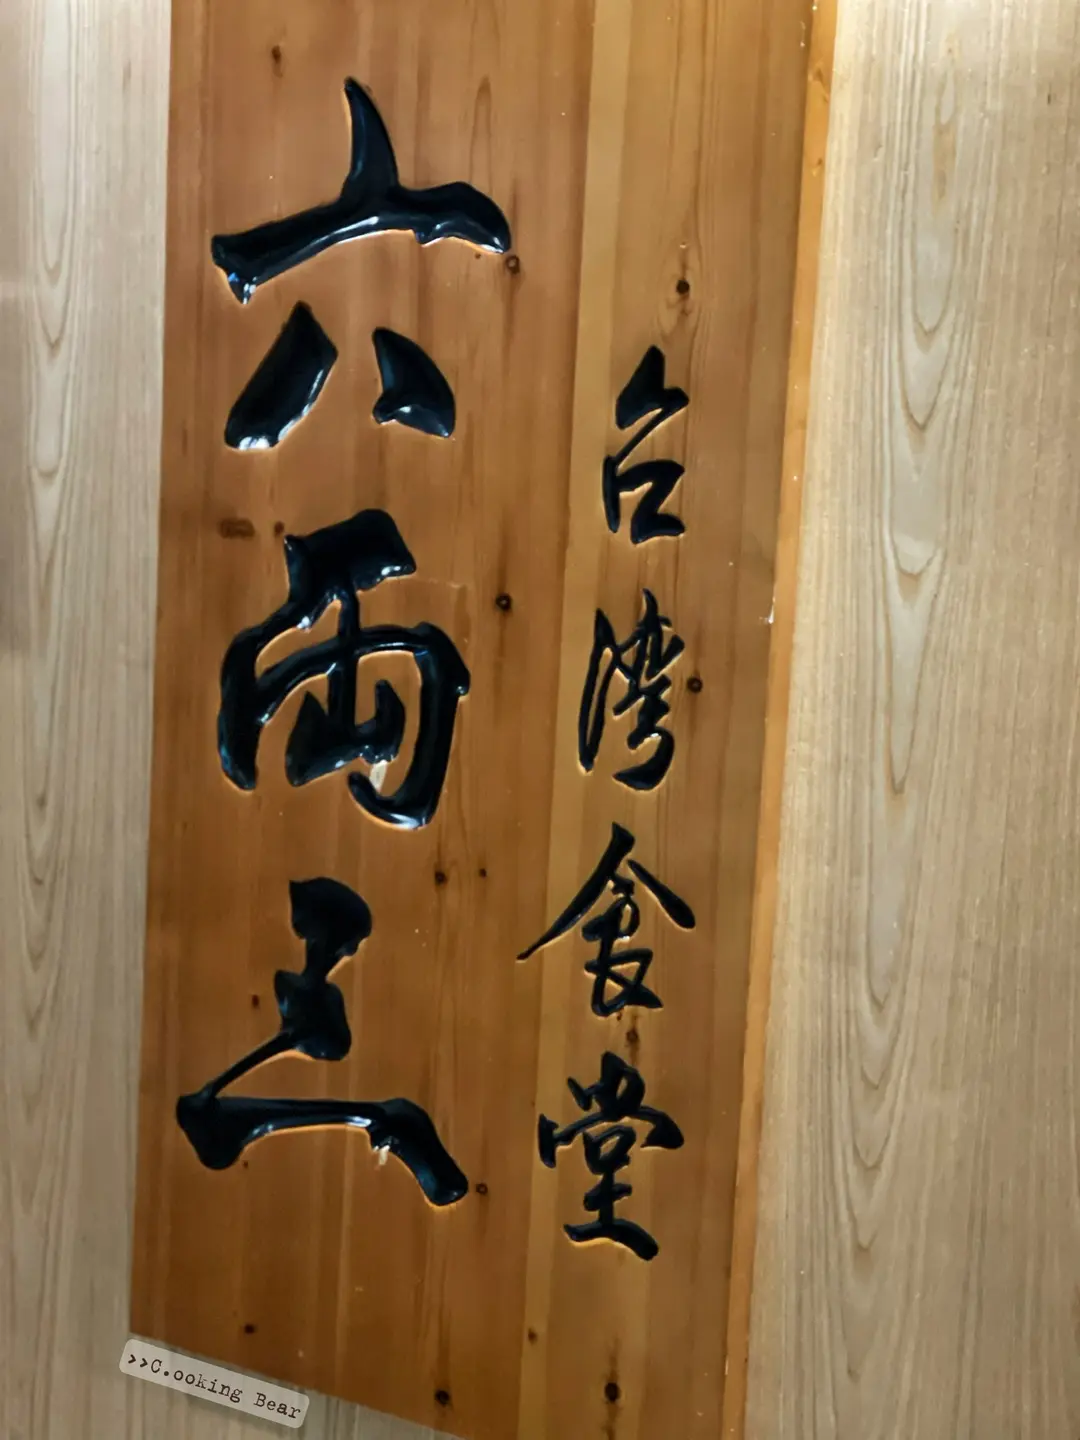 台灣食堂
六兩三
>>C.ooking Bear